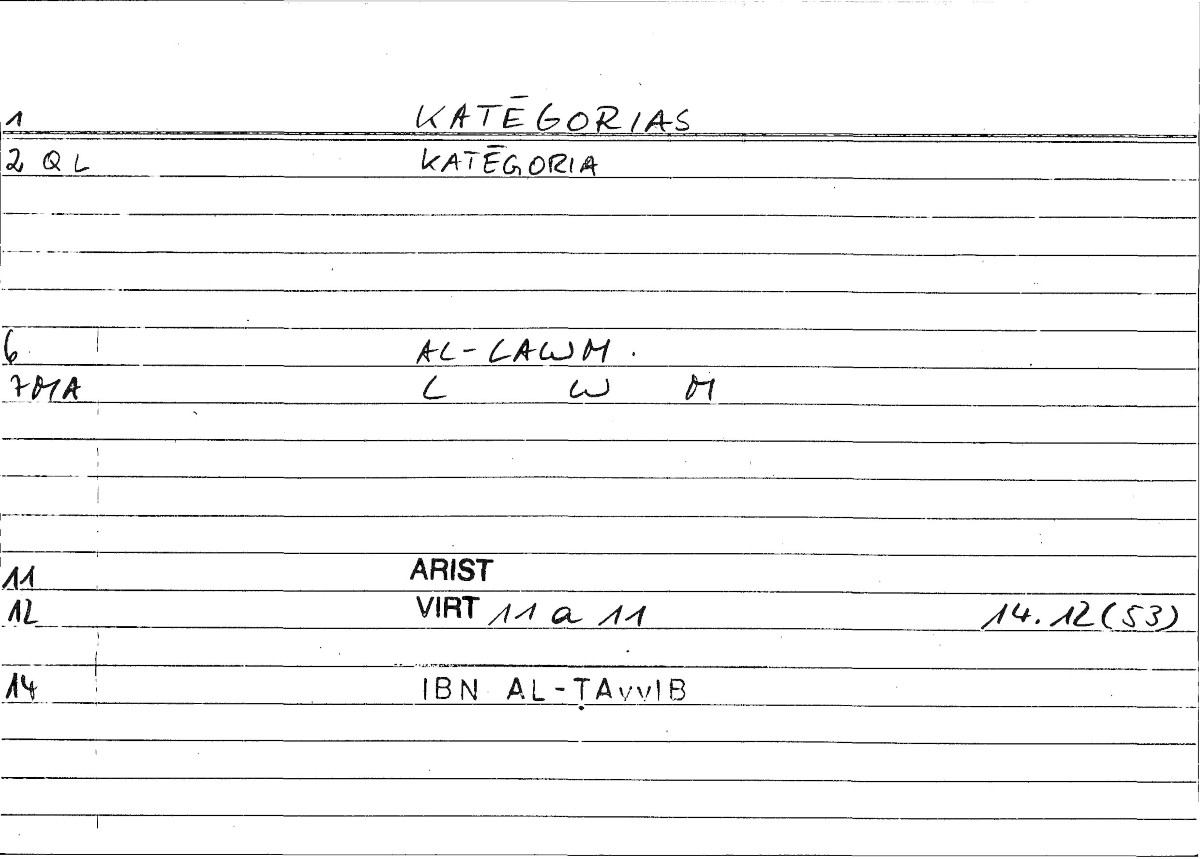 1 KATĒGORIAS
2 QL KATĒGORIA
6 AL-LAWM.
7MA L W M
11 ARIST
12 VIRT 11 a 11 14.12(53)
14 IBN AL-ṬAvvIB